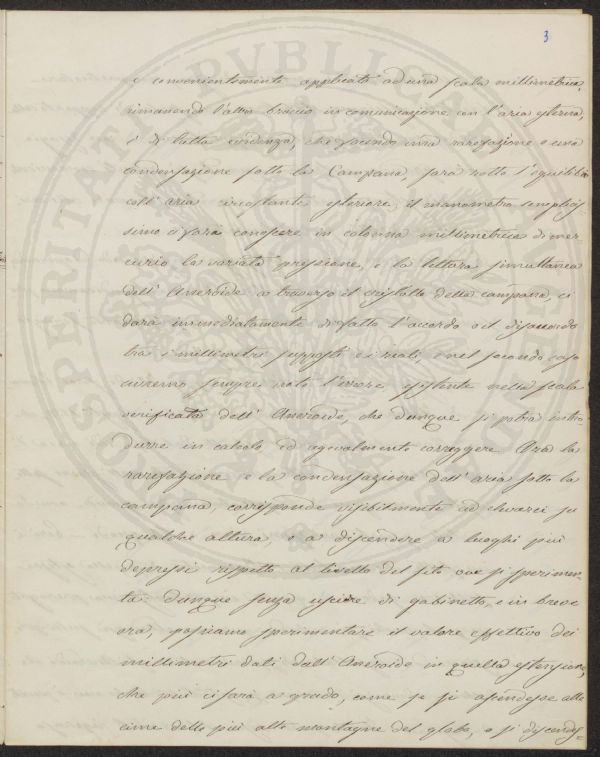 3
e convenientemente applicato ad una scala millimetrica,
rimanendo l'altro braccio in comunicazione con l'aria esterna,
è di tutta evidenza, che facendo una rarefazione o una
condensazione sotto la Campana, sarà rotto l'equilibrio
coll' aria circostante esteriore, il manometro semplicis
simo ci farà conoscere in colonna millimetrica di mer
curio la variata pressione, e la lettura simultanea
dell' Aneroide a traverso il cristallo della campana, ci
darà immediatamente di fatto l'accordo o il disaccordo
tra i millimetri supposti e i reali, e nel secondo caso
avremo sempre noto l'errore esistente nella scala
verificata dell' Aneroide, che dunque si potrà intro
durre in calcolo ed agevolmente correggere. Ora la
rarefazione e la condensazione dell' aria sotto la
campana, corrisponde visibilmente ad elevarci su
qualche altura, o a discendere a luoghi più
depressi rispetto al livello del sito ove si sperimen
ta. Dunque senza uscire di gabinetto, e in breve
ora, possiamo sperimentare il valore effettivo dei
millimetri dati dall' Aneroide in quella estensione,
che più ci sarà a grado, come se si ascendesse alle
cime delle più alte montagne del globo, o si discendes=
PVBLICAE
PROSPERITATI